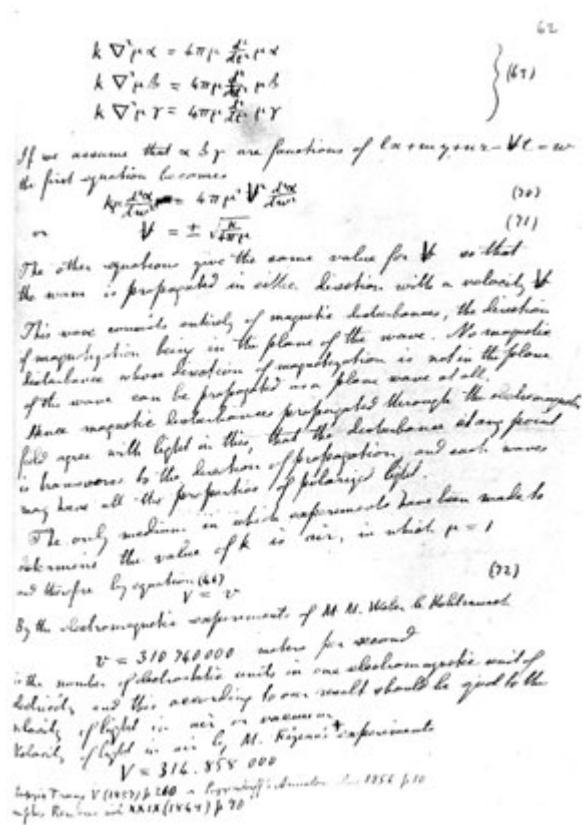 62
k ∇² μα = 4πμ d²/dt² μα
k ∇² μβ = 4πμ d²/dt² μβ
k ∇² μγ = 4πμ d²/dt² μγ
If we assume that α β γ are functions of lx + my + nz - Vt = w
the first equation becomes
kμ d²α/dw² = 4πμ² V² d²α/dw² (70)
or V = ± √(k/4πμ) (71)
The other equations give the same value for V so that
the wave is propagated in either direction with a velocity V
This wave consists entirely of magnetic disturbances, the direction
of magnetization being in the plane of the wave. No magnetic
disturbance whose direction of magnetization is not in the plane
of the wave can be propagated as a plane wave at all.
Hence magnetic disturbances propagated through the electromagnetic
field agree with light in this, that the disturbance at any point
is transverse to the direction of propagation, and such waves
may have all the properties of polarized light
The only medium in which experiments have been made to
determine the value of k is air, in which μ = 1
and therefore by equation (46)
V = v (72)
By the electromagnetic experiments of M M. Weber &
v = 310 740 000 metres per second
is the number of electrostatic units in one electromagnetic unit of
electricity and this according to our result should be equal to the
velocity of light in air or vacuum
Velocity of light in air by M. experiments
V = 314.858 000
Trans V (1857) p 260 or Poggendorff's 1856 p 10
Rendus vol XXIX (1849) p 90